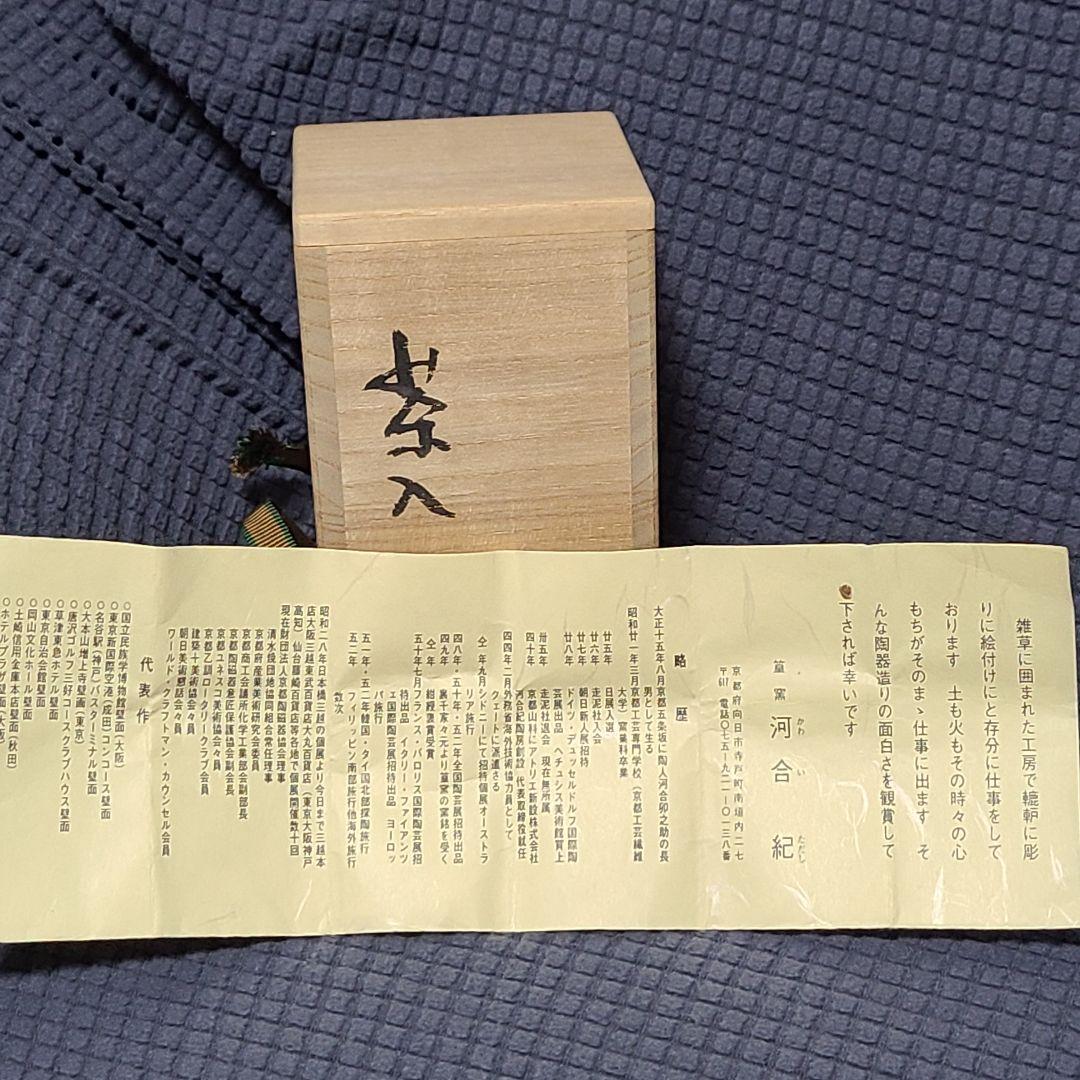 紫入
雑草に囲まれた工房で轆轤に彫
りに絵付けにと存分に仕事をして
おります 土も火もその時々の心
もちがそのまゝ仕事に出ます そ
んな陶器造りの面白さを観賞して
下されば幸いです
篁窯 河合 紀
かわ い ただし
京都府向日市寺戸町南垣内二一七
〒617 電話〇七五―九二一―〇一三八番
略歴
大正十五年八月 京都五条坂に陶人河合卯之助の長
男として生る
昭和廿一年三月 京都工芸専門学校(京都工芸繊維
大学)窯業科卒業
廿五年 日展入選
廿六年 走泥社入会
廿七年 朝日新人展招待
廿八年 ドイツ・デュッセルドルフ国際陶
芸展出品(チュシス美術館買上
卅五年 走泥社退会 現在無所属
四十年 京都山科にアトリエ新設株式会社
河合紀陶房創設 代表取締役就任
四四年二月 外務省海外技術協力員として
クェートに派遣さる
仝年九月 シドニーにて招待個展オーストラ
リア旅行
四八年・五十年・五二年全国陶芸展招待出品
四九年 裏千家々元より篁窯の窯銘を受く
仝年 紺綬褒賞受賞
五十年七月 フランス・バロリス国際陶芸展招
待出品 イタリー・ファイアンツ
ェ国際陶芸展招待出品 ヨーロッ
パ旅行
五一年・五二年 韓国・タイ国北部採陶旅行
五二年 フィリッピン南部旅行他海外旅行
数次
昭和二八年日本橋三越の個展より今日まで三越本
店大阪三越東武百貨店大丸百貨店(東京大阪神戸
高知)仙台藤崎百貨店等各地で個展開催数十回
現在財団法人京都陶磁器協会理事
清水焼団地協同組合常任理事
京都府産業美術研究会委員
京都商工会議所化学工業部会副部長
京都陶磁器意匠保護協会副会長
京都ユネスコ美術協会々員
京都乙訓ロータリークラブ会員
建築十美術協会々員
朝日美術懇話会々員
ワールド・クラフトマン・カウンセル会員
代表作
○国立民族学博物館壁面(大阪)
○東京新国際空港(成田)コンコース壁面
○名谷駅(神戸)バスターミナル壁面
○大本山増上寺壁画(東京)
○唐沢ゴルフ三好コースクラブハウス壁面
○草津東急ホテル壁面
○東京自治会館壁面
○岡山文化ホール壁面
○土崎信用金庫本店壁面(秋田)
○ホテルプラザ壁面(大阪)